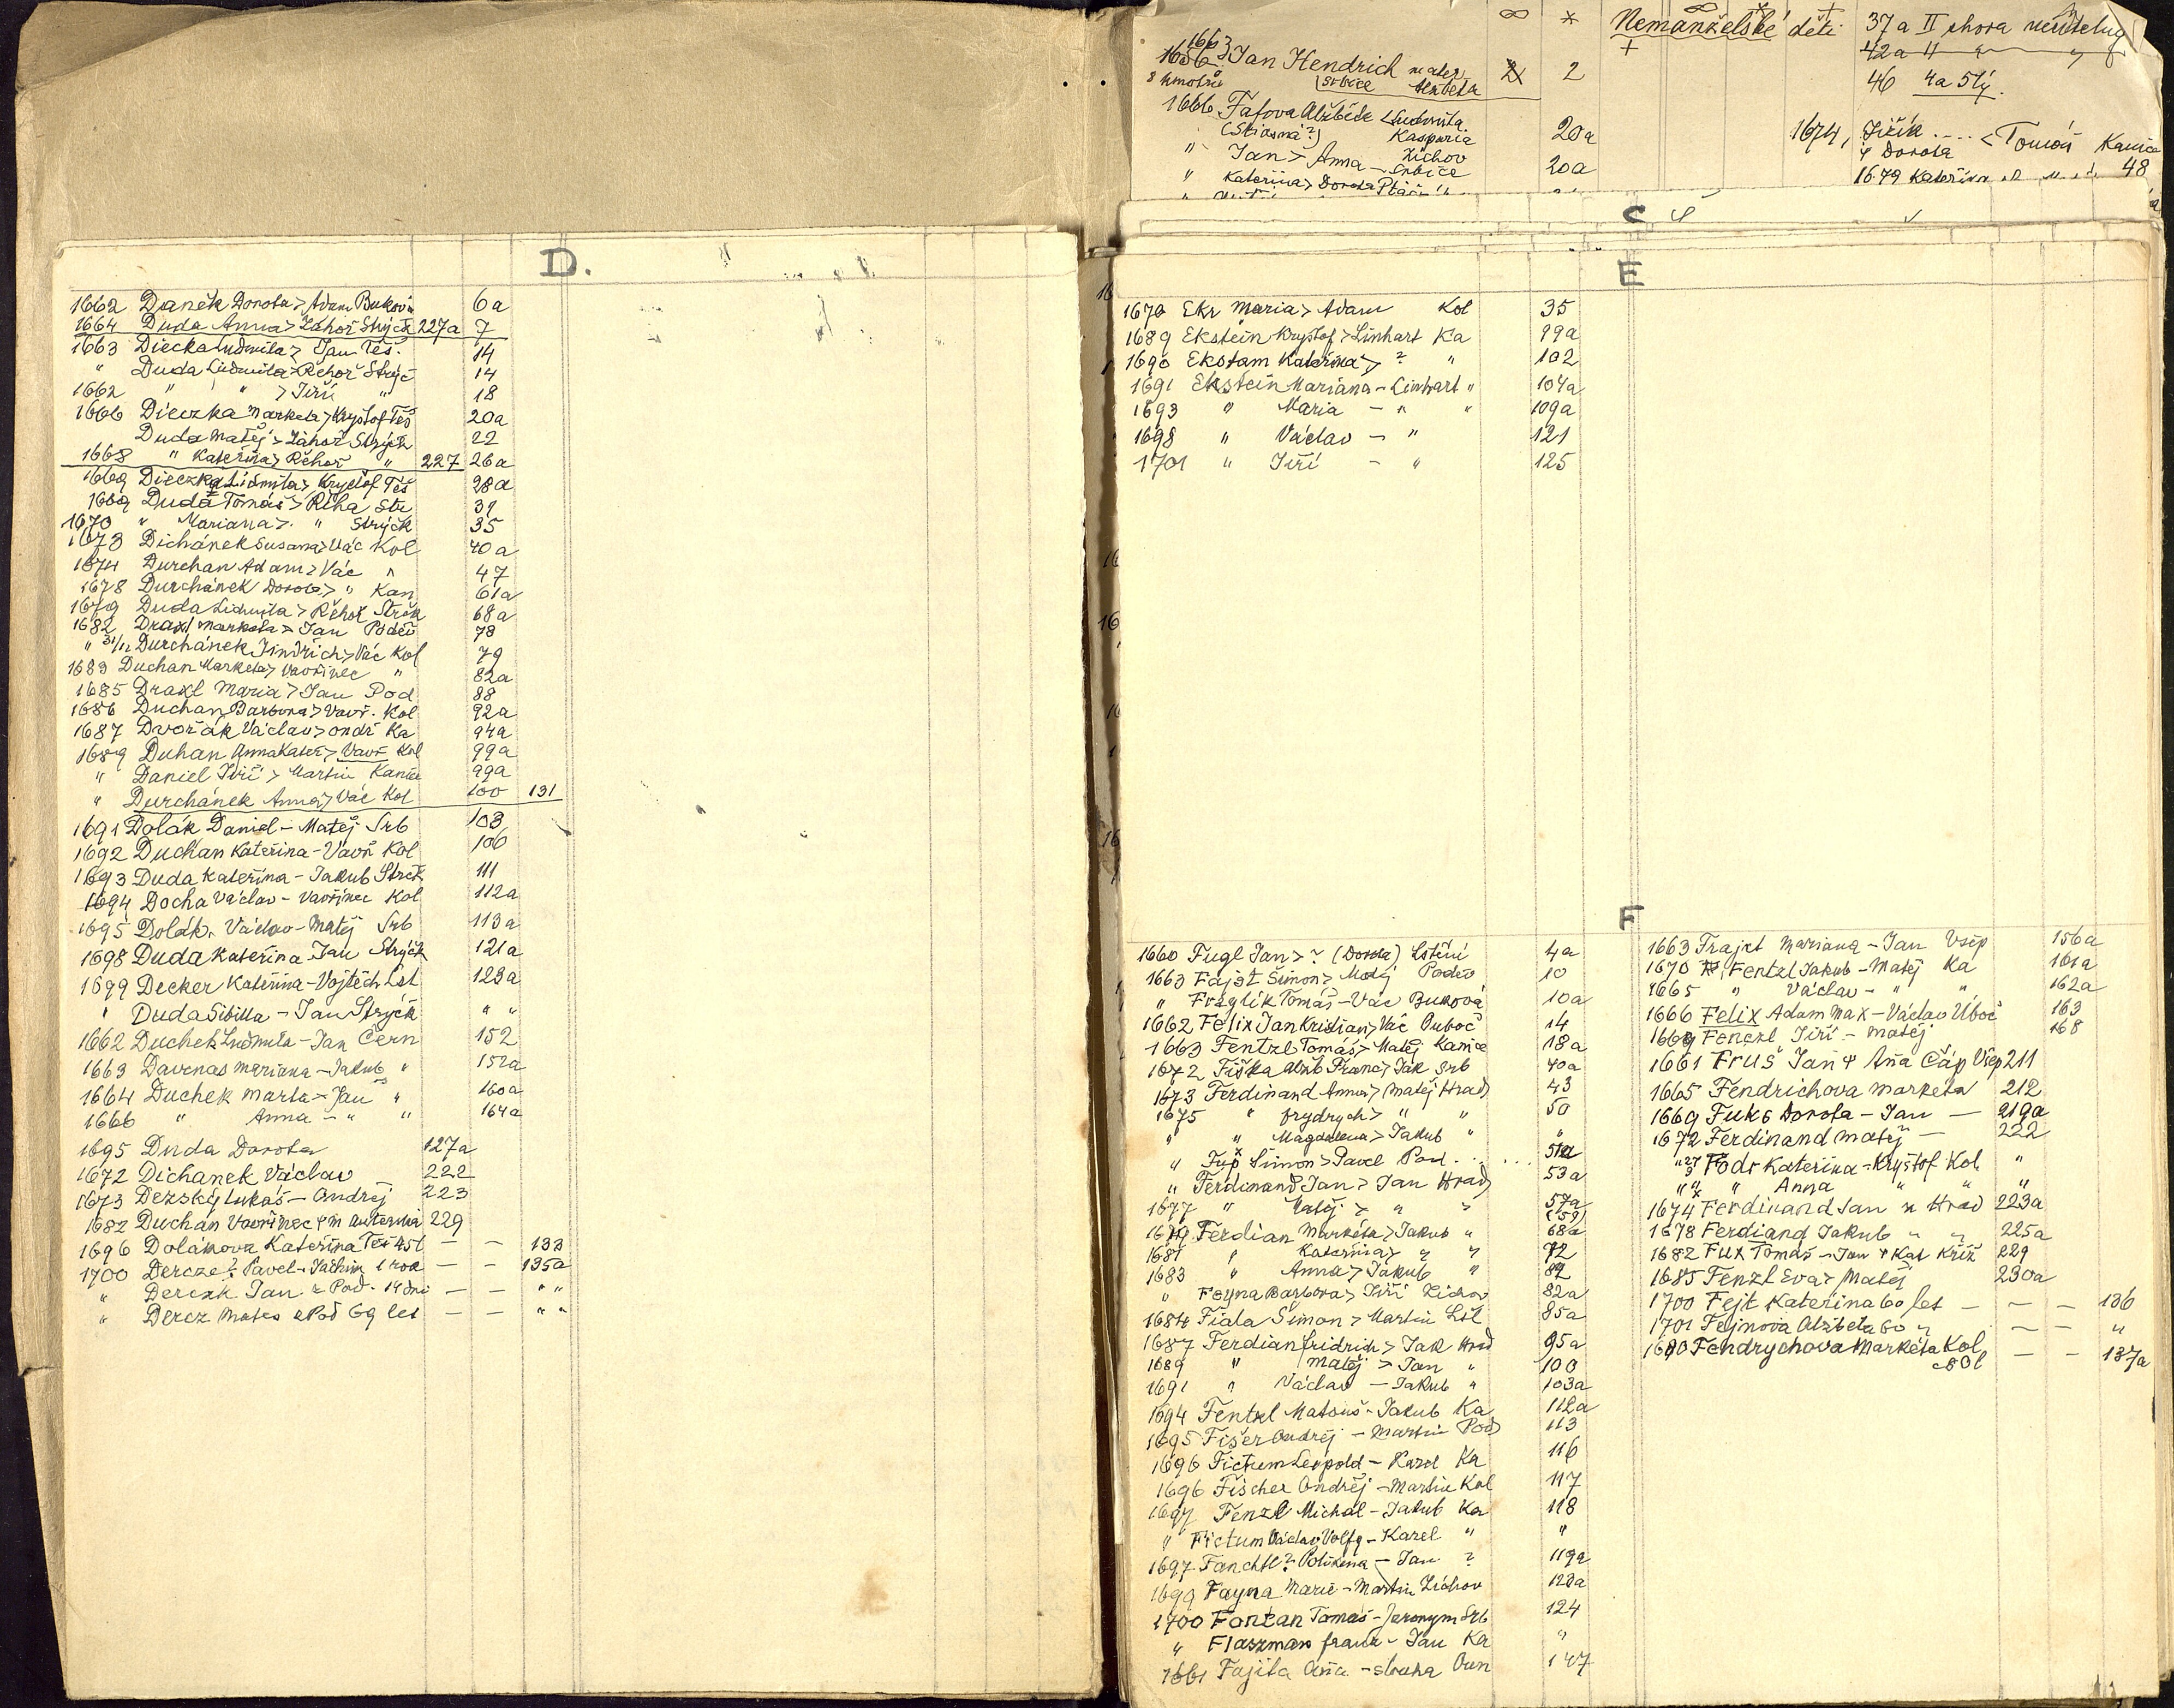 D.
1662 Daněk Dorota > Adam Buková 6a
1664 Duda Anna > Záhoř Strýčk 227a 7
1663 Diecka Ludmila > Jan Teš. 14
" Duda Ludmila > Řehoř Strýč 14
1662 " " > Jiří " 18
1666 Dieczka Marketa > Kryštof Teš 20a
Duda Matěj > Záhoř Strýčk 22
1668 " Kateřina > Řehoř " 227 26a
1669 Dieczka Lidmila > Kryštof Teš 28a
1669 Duda Tomáš > Řiha Str 31
1670 " Mariana > " Strýčk 35
1673 Dichánek Susana > Vác Kol 40a
1674 Durchan Adam > Vác " 47
1678 Durchánek Dorota > " Kan 61a
1679 Duda Lidmila > Řehoř Strčk 68a
1682 Draxl Marketa > Jan Poděv 78
" 31/12 Durchánek Jindřich > Vác Kol 79
1683 Duchan Marketa > Vavřinec " 82a
1685 Draxl Maria > Jan Pod 88
1686 Duchan Barbora > Vavř. Kol 92a
1687 Dvořák Václav > Ondř Ka 94a
1689 Duhan Anna Kateř > Vavř Kol 99a
" Daniel Jiří > Martin Kanice 99a
" Durchánek Anna > Vác Kol 100 131
1691 Dolák Daniel - Matěj Srb 103
1692 Duchan Kateřina - Vavř Kol 106
1693 Duda Kateřina - Jakub Strčk 111
1694 Docha Václav - Vavřinec Kol 112a
1695 Dolák Václav - Matěj Srb 113a
1698 Duda Kateřina Jan Strýčk 121a
1699 Decker Kateřina - Vojtěch Lst 123a
" Duda Sibilla - Jan Strýčk " "
1662 Duchek Ludmila - Jan Čern 152
1663 Davenas Mariana - Jakub " 152a
1664 Duchek Marta - Jan " 160a
1666 " Anna - " " 164a
1695 Duda Dorota 127a
1672 Dichanek Václav 222
1673 Dezský Lukáš - Ondřej 223
1682 Duchan Vavřinec 229
1696 Dolákova Kateřina Teš 45 l - - 133
1700 Dercze? Pavel - Jáchim 1 roa - - 135a
" Derczk Jan z Pod. 14 dní - - " "
" Dercz Mates z Pod 69 let - - " "
∞ * Nemanželské děti +
37a II shora
42a 11 " "
46 4a 5tý.
1663
1656 Jan Hendrich mater Alžběta 2 2
8 kmotrů Srbice
1666 Fafova Alžběta < Ludmila 20a
(Stiasná?) Kasparia
" Jan > Anna - Zichov Srbice 20a
" Kateřina > Dorota
1674, Jiřík .... < Tomáš Kanice
Dorota
1679 Kateřina " " " 48
C
E
1670 Ekr Maria > Adam Kol 35
1689 Ekstein Kryštof > Linhart Ka 99a
1690 Ekstam Kateřina > ? " 102
1691 Ekstein Mariana - Linhart " 104a
1693 " Maria - " " 109a
1698 " Václav - " 121
1701 " Jiří - " 125
F
1660 Fugl Jan > ? (Dorota) Lštění 4a
1663 Fajst Šimon > Matěj Poděv 10
" Fraglík Tomáš - Vác Buková 10a
1662 Felix Jan Kristian > Vác Ouboč 14
1663 Fentzl Tomáš > Matěj Kanice 18a
1672 Fiška Alžb Franc > Jak Srb 40a
1673 Ferdinand Anna > Matěj Hrad 43
1675 " frydrych > " " 50
" " Magdalena > Jakub " "
" Fux Šimon > Pavel Pod ... ... 51a
" Ferdinand Jan > Jan Hrad 53a
1677 " Matěj > " " 57a (59)
Ferdian Markéta > Jakub " 68a
1681 " Kateřina > " " 72
1683 " Anna > Jakub " 82
" Feyna Barbora > Jiří Zichov 82a
1684 Fiala Šimon > Martin Lšt 85a
1687 Ferdian fridrich > Jak Hrad 95a
1689 " Matěj > Jan " 100
1691 " Václav - Jakub " 103a
1694 Fentzl Matouš - Jakub Ka 112a
1695 Fišer Ondřej - Martin Pod 113
1696 Fictum Leopold - Karel Ka 116
1696 Fischer Ondřej - Martin Kol 117
1697 Fenzl Michal - Jakub Ka 118
" Fictum Václav Volfg - Karel " "
1697 Fanchtl? Polixena - Jan ? 119a
1699 Fayna Marie - Martin Zichov 123a
1700 Fontan Tomáš - Jeronym Srb 124
" Flaszman franz - Jan Ka "
1661 Fajita Aña - straka Oun 147
1663 Frajct Mariana - Jan Všep 156a
1670 Fentzl Jakub - Matěj Ka 161a
1665 " Václav - " " 162a
1666 Felix Adam Max - Václav Úboč 163
1669 Fenczl Jiří - Matěj 168
1661 Fruš Jan + Aña Čáp Všep 211
1665 Fendrichova Marketa 212
1669 Fuks Dorota - Jan - 219a
1672 Ferdinand Matěj - 222
" Fodr Kateřina - Kryštof Kol "
" " Anna " " "
1674 Ferdinand Jan z Hrad 223a
1678 Ferdiand Jakub " " 225a
1682 Fux Tomáš - Jan + Kat Kříž 229
1685 Fenzl Eva > Matěj 230a
1700 Fejt Kateřina 60 let - - - 136
1701 Fejnova Alžběta 60 " - - "
1680 Fendrychova Markéta Kol - - 137a
80 l